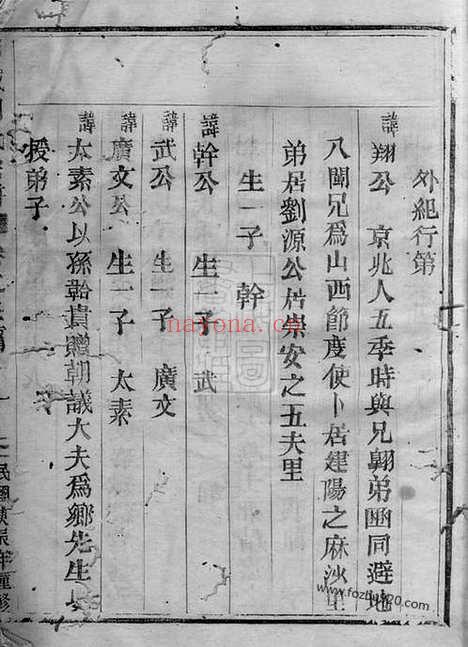 外紀行第
諱翔公 京兆人五季時與兄翺弟豳同避地
八閩兄爲山西節度使卜居建陽之麻沙里
弟居劉源公居崇安之五夫里
生一子 幹
諱幹公 生一子 武
諱武公 生一子 廣文
諱廣文公 生一子 太素
諱太素公以孫韐貴贈朝議大夫爲鄉先生
授弟子
民國庚辰年重修
nayona.cn
www.fozhu920.com